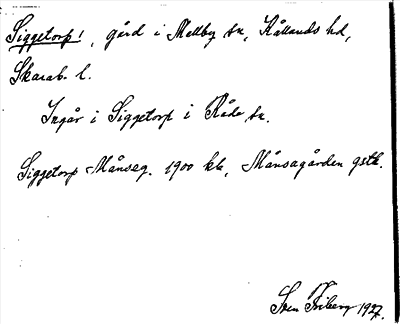 Siggetorp!, gård i Mellby sn, Kållands hd,
Skarab. l.
Ingår i Siggetorp i Råda sn.
Siggetorp Månseg. 1900 kb, Månsagården gstk.
Sven Friberg 1927.